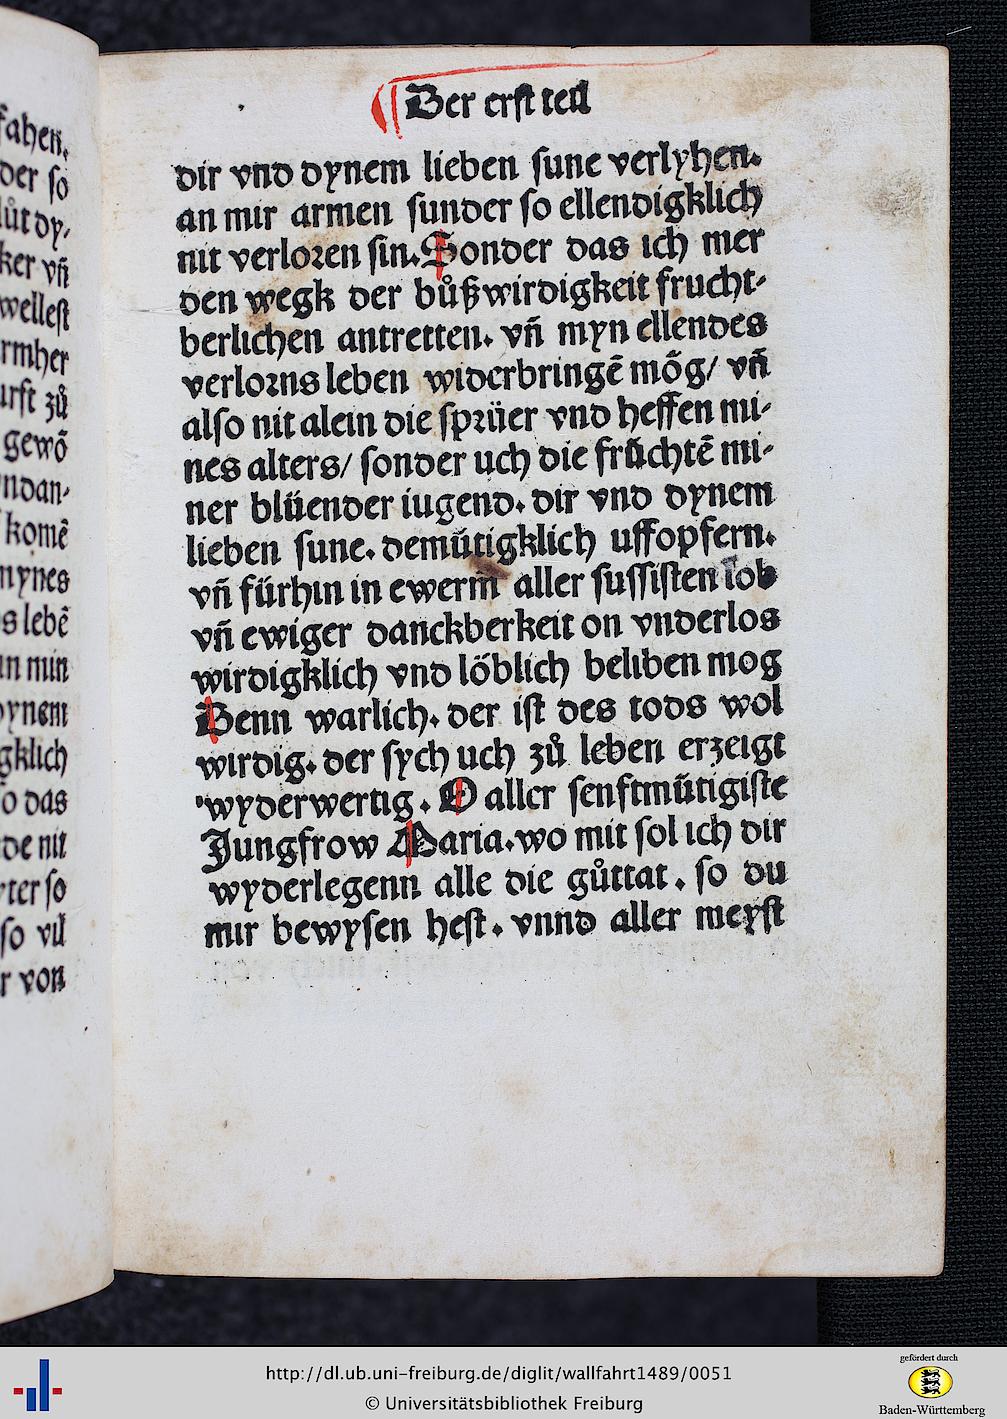 fahen.
der so
lůt dy-
ker vñ
wellest
rmher
urft zů
gewõ
ndan-
komẽ
mynes
s lebẽ
an min
dynem
gklich
o das
de nit
yter so
so vil
r von
Der erst teil
dir vnd dynem lieben sune verlyhen.
an mir armen sunder so ellendigklich
nit verloꝛen sin. Sonder das ich mer
den wegk der bůßwirdigkeit frucht-
berlichen antretten. vñ myn ellendes
verloꝛns leben widerbringẽ mög/ vñ
also nit alein die spꝛüer vnd heffen mi-
nes alters/ sonder uch die früchtẽ mi-
ner blüender iugend. dir vnd dynem
lieben sune. demütigklich uffopfern.
vñ fürhin in ewerm̃ aller sussisten lob
vñ ewiger danckberkeit on vnderlos
wirdigklich vnd löblich beliben mog
Denn warlich. der ist des tods wol
wirdig. der sych uch zů leben erzeigt
wyderwertig. O aller senftmütigiste
Jungfrow Maria. wo mit sol ich dir
wyderlegenn alle die gůttat. so du
mir bewysen hest. vnnd aller meyst
http://dl.ub.uni-freiburg.de/diglit/wallfahrt1489/0051
© Universitätsbibliothek Freiburg
gefördert durch
Baden-Württemberg